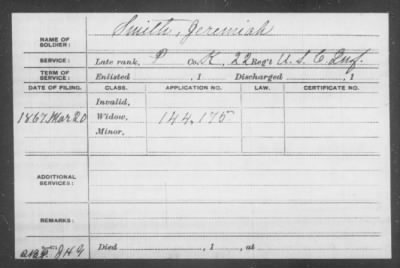 NAME OF SOLDIER: Smith, Jeremiah
SERVICE: Late rank, P Co. K, 22 Reg't U. S. C. Inf.
TERM OF SERVICE: Enlisted , 1 Discharged , 1
DATE OF FILING. CLASS. APPLICATION NO. LAW. CERTIFICATE NO.
Invalid,
1867 Mar 20 Widow, 144,175
Minor,
ADDITIONAL SERVICES:
REMARKS:
Died , 1 , at